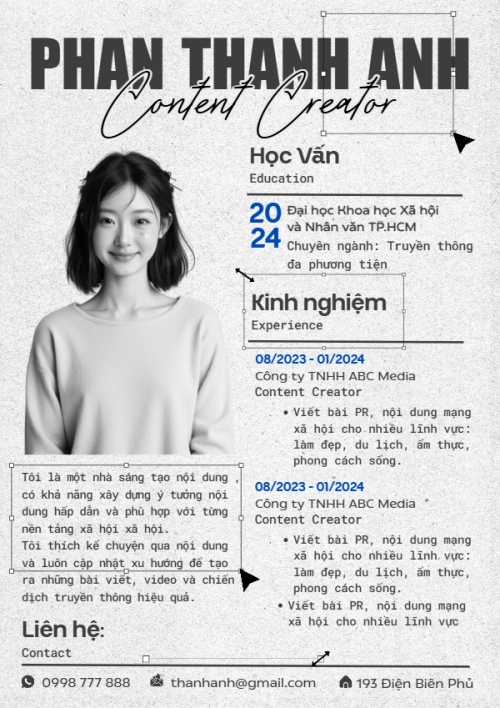 PHAN THANH ANH
Content Creator
Học Vấn
Education
2024
Đại học Khoa học Xã hội
và Nhân văn TP.HCM
Chuyên ngành: Truyền thông
đa phương tiện
Kinh nghiệm
Experience
08/2023 - 01/2024
Công ty TNHH ABC Media
Content Creator
• Viết bài PR, nội dung mạng
xã hội cho nhiều lĩnh vực:
làm đẹp, du lịch, ẩm thực,
phong cách sống.
08/2023 - 01/2024
Công ty TNHH ABC Media
Content Creator
• Viết bài PR, nội dung mạng
xã hội cho nhiều lĩnh vực:
làm đẹp, du lịch, ẩm thực,
phong cách sống.
• Viết bài PR, nội dung mạng
xã hội cho nhiều lĩnh vực
Tôi là một nhà sáng tạo nội dung ,
có khả năng xây dựng ý tưởng nội
dung hấp dẫn và phù hợp với từng
nền tảng xã hội xã hội.
Tôi thích kể chuyện qua nội dung
và luôn cập nhật xu hướng để tạo
ra những bài viết, video và chiến
dịch truyền thông hiệu quả.
Liên hệ:
Contact
0998 777 888
thanhanh@gmail.com
193 Điện Biên Phủ